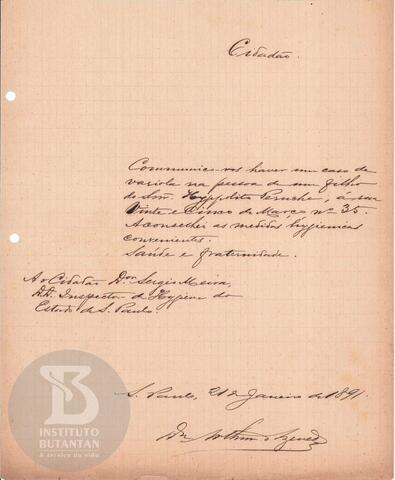 Cidadão.
Communico-vos haver um caso de
variola na pessoa de um filho
do Snr. Hyppolito Peruche, á rua
Vinte e Cinco de Março nº 35.
Aconselhei as medidas hygienicas
convenientes.
Saúde e fraternidade.
Ao Cidadão Dor Sergio Meira,
DD. Inspector de Hygiene do
Estado de S. Paulo.
S. Paulo, 21 de Janeiro de 1891.
Dr.
INSTITUTO
BUTANTAN
A serviço da vida